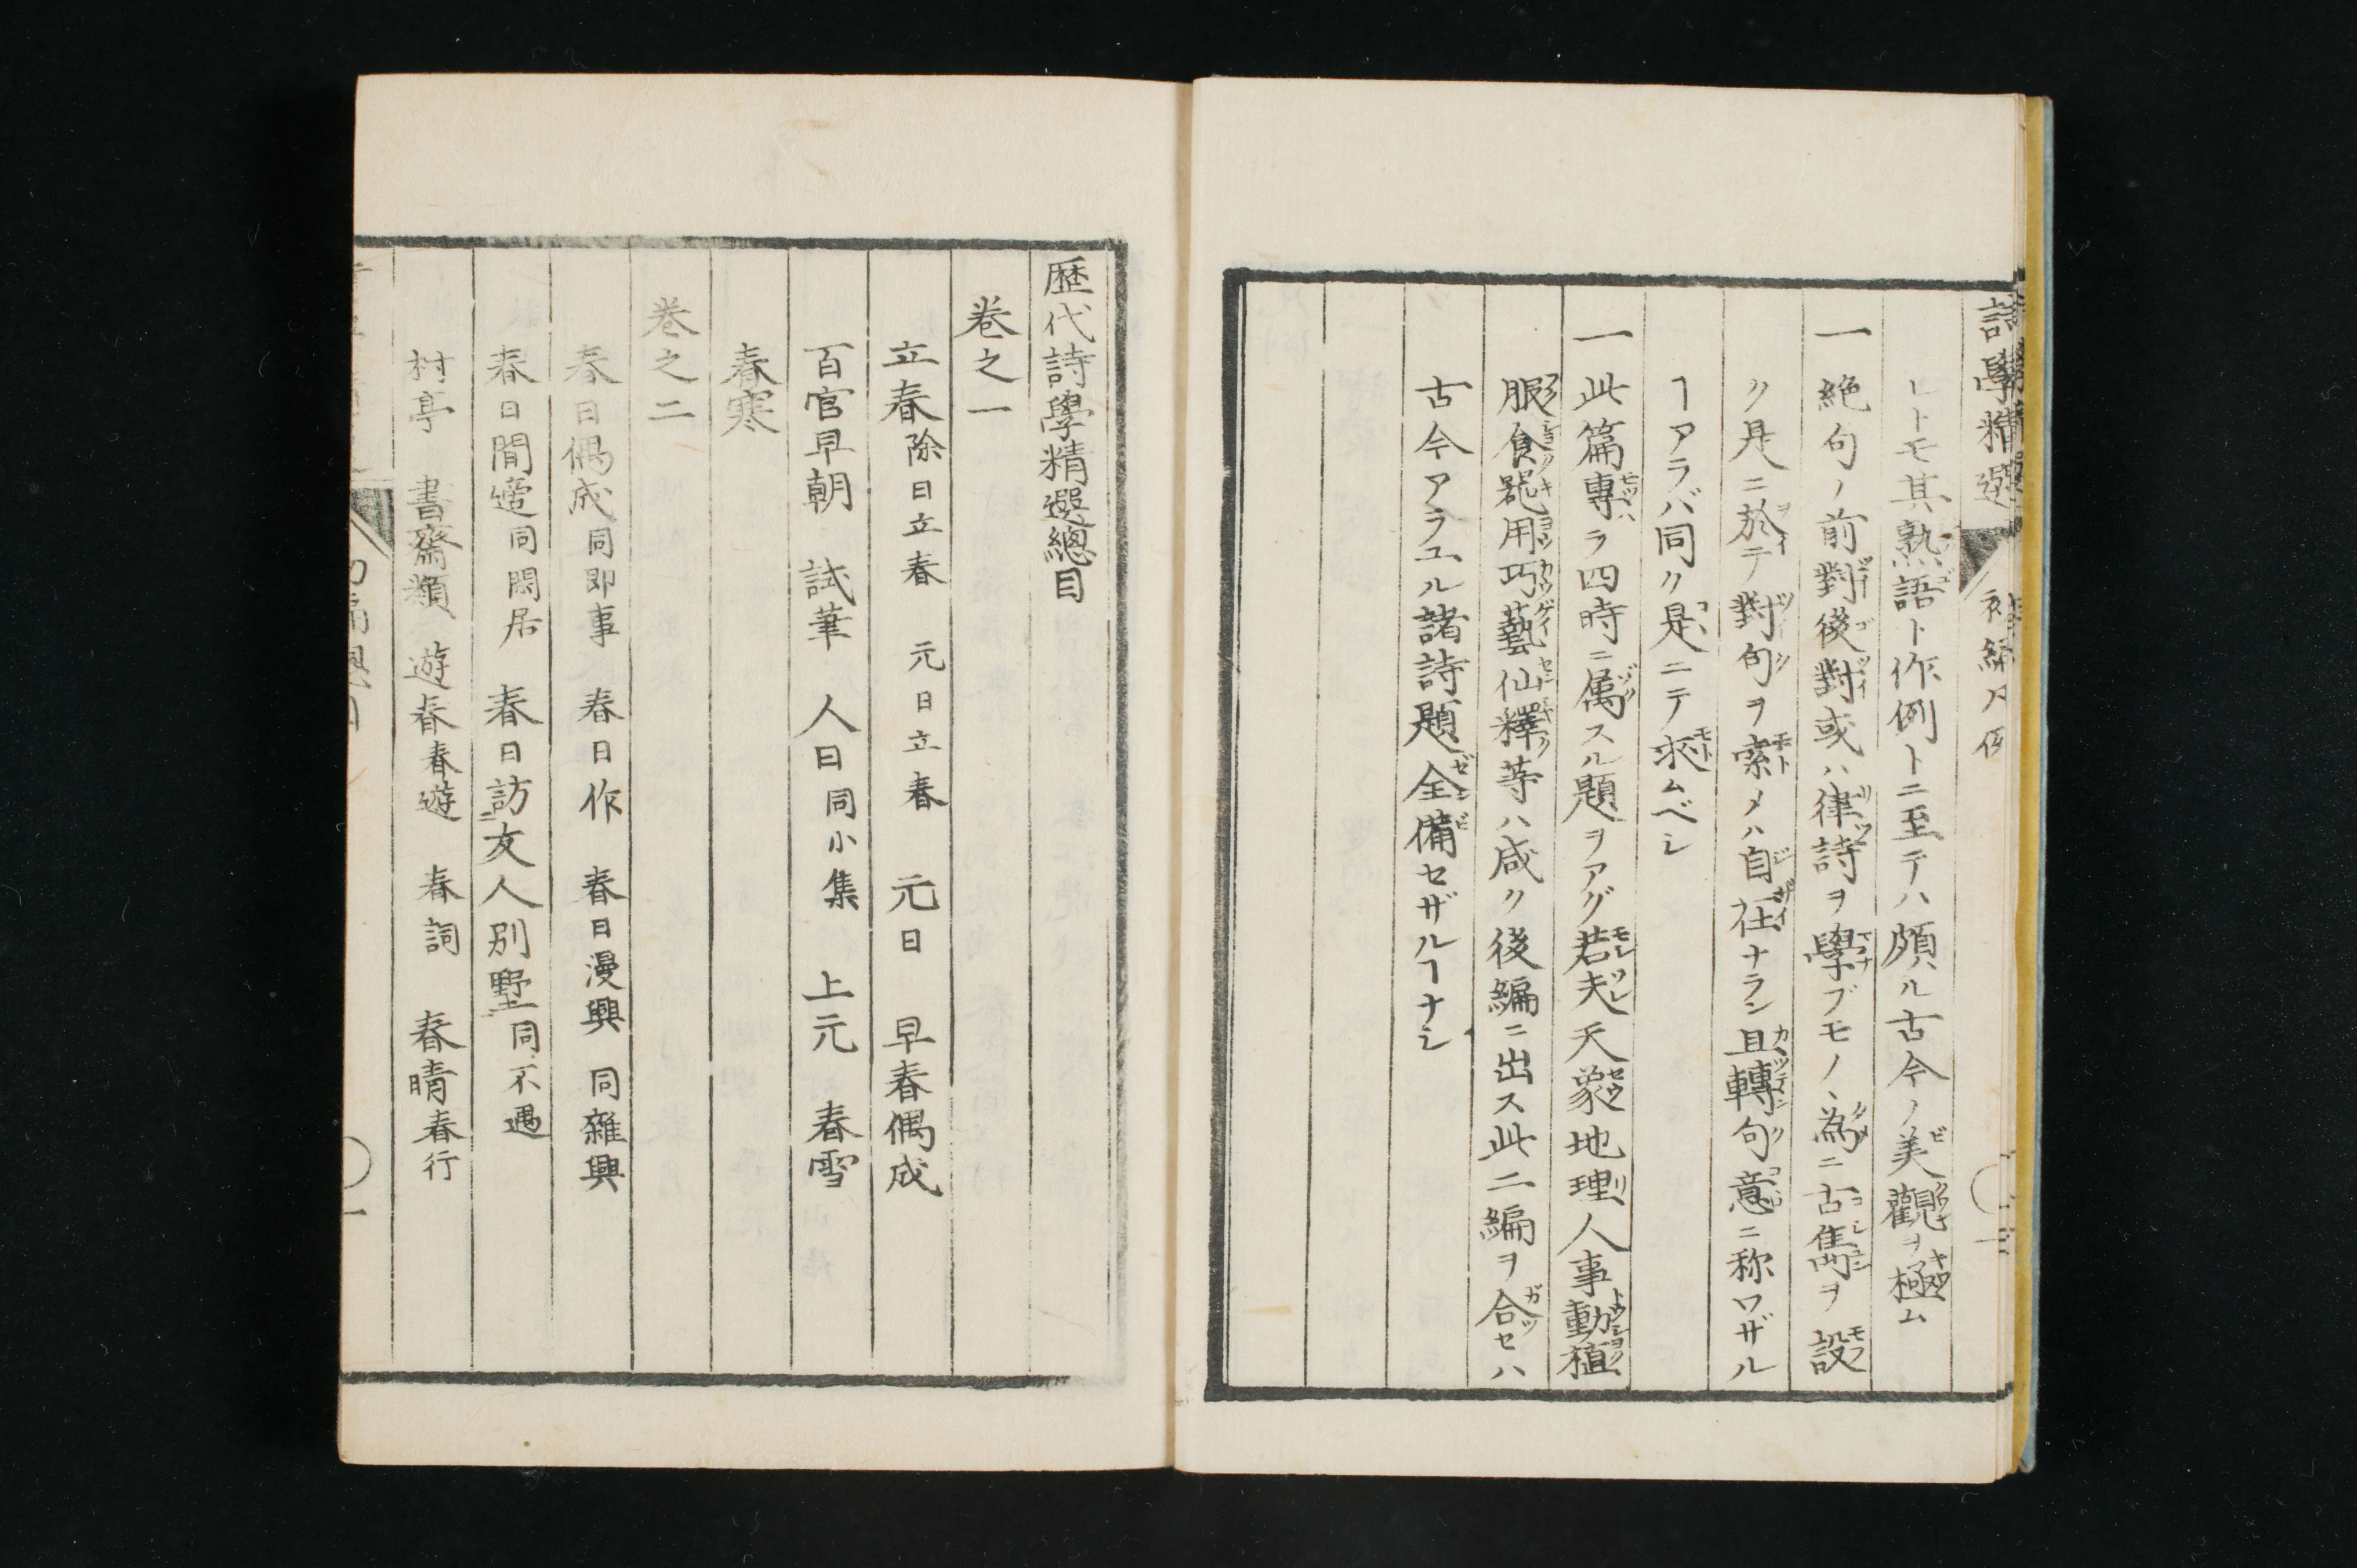 詩學精選 初編凡例
レトモ其熟語ト作例トニ至テハ頗ル古今ノ美觀ヲ極ム
一絶句ノ前對後對或ハ律詩ヲ學ブモノヽ為ニ古雋ヲ設
ク是ニ於テ對句ヲ索メハ自在ナラン且轉句意ニ称ワザル
ヿアラバ同ク是ニテ求ムベシ
一此篇專ラ四時ニ属スル題ヲアグ若夫天象地理人事動植
服食器用巧藝仙釋等ハ咸ク後編ニ出ス此二編ヲ合セハ
古今アラユル諸詩題全備セザルヿナシ
歴代詩學精選總目
卷之一
立春 除日立春 元日立春 元日 早春偶成
百官早朝 試筆 人日 同小集 上元 春雪
春寒
卷之二
春日偶成 同即事 春日作 春日漫興 同雜興
春日閒遊 同閑居 春日訪友人別墅 同不遇
村亭 書齋類 遊春 春遊 春詞 春晴 春行
一